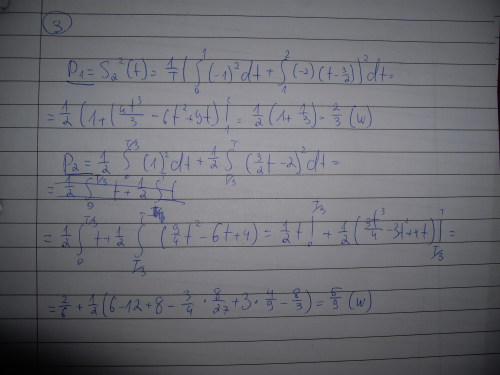 3
P₁ = S₂²(t) = 1/T (∫₀¹ (-1)² dt + ∫₁² (-2) (t - 3/2))² dt =
= 1/2 (1 + (4t³/3 - 6t² + 9t) |₁ = 1/2 (1 + 1/3) = 2/3 (W)
P₂ = 1/2 ∫₀^(T/3) (1)² dt + 1/2 ∫_(T/3)^T (3/2 t - 2)² dt =
= 1/2 ∫₀^(T/3) t + 1/2 ∫
= 1/2 ∫₀^(T/3) t + 1/2 ∫_(T/3)^T (9/4 t² - 6t + 4) = 1/2 t |₀^(T/3) + 1/2 (3t³/4 - 3t² + 4t) |_(T/3)^T =
= 2/6 + 1/2 (6 - 12 + 8 - 3/4 · 8/27 + 3 · 4/9 - 8/3) = 5/9 (W)